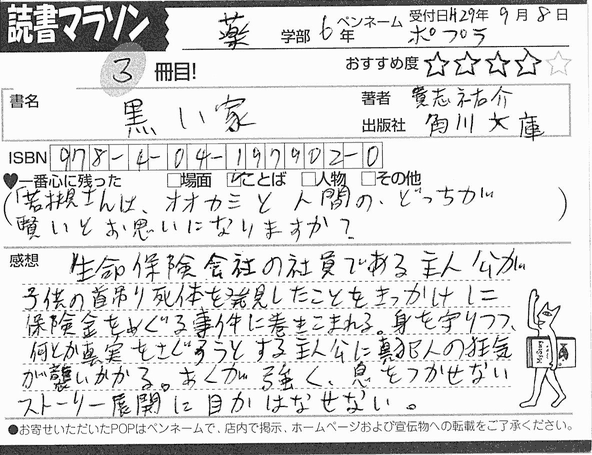 読書マラソン
薬 学部 6年 ペンネーム ポプラ 受付日H29年 9月 8日
3 冊目! おすすめ度 ★★★★☆
書名 黒い家 著者 貴志祐介
出版社 角川文庫
ISBN 978-4-04-197902-0
♥一番心に残った □場面 ☑ことば □人物 □その他
(「若槻さんは、オオカミと人間の、どっちが
賢いとお思いになりますか?)
感想 生命保険会社の社員である主人公が
子供の首吊り死体を発見したことをきっかけに
保険金をめぐる事件に巻きこまれる。身を守りつつ、
何とか真実をさぐろうとする主人公に真犯人の狂気
が襲いかかる。あくが強く、息をつかせない
ストーリー展開に目がはなせない。
●お寄せいただいたPOPはペンネームで、店内で掲示、ホームページおよび宣伝物への転載をご了承ください。